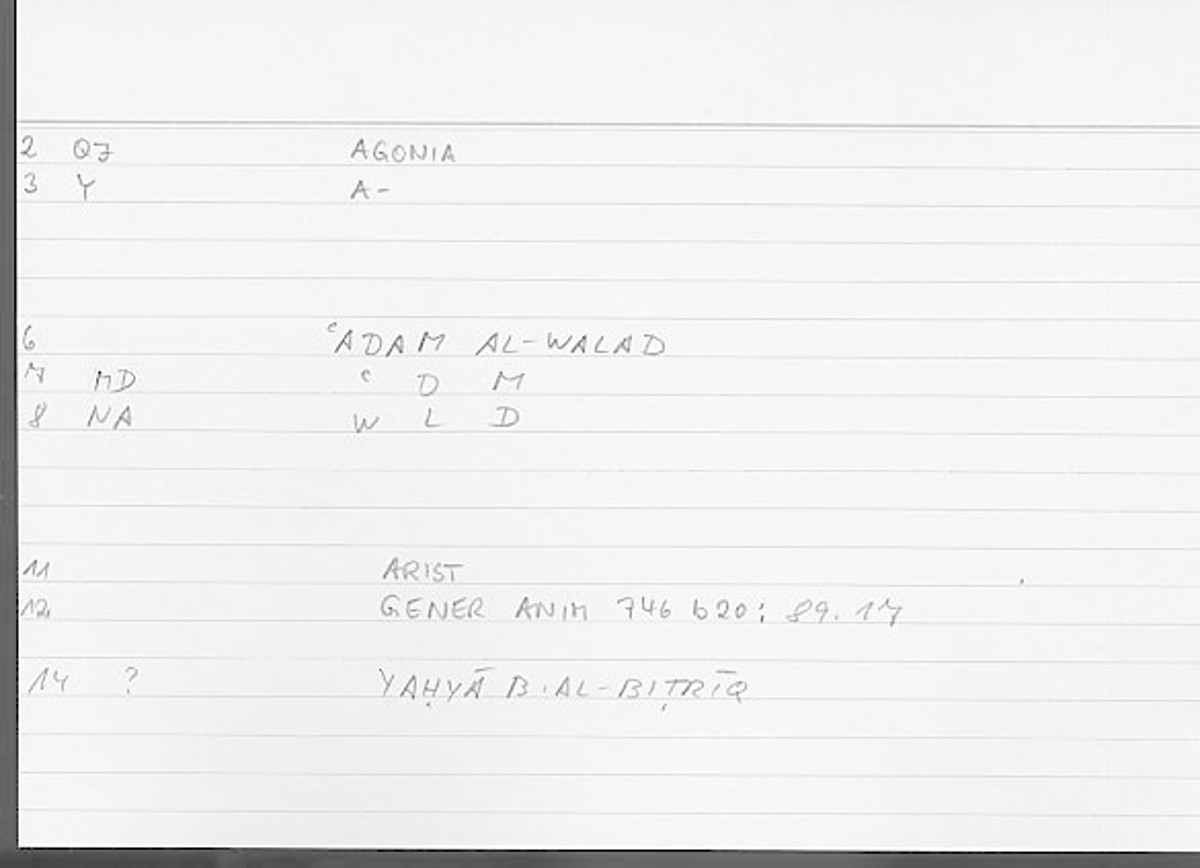 2 QJ AGONIA
3 Y A-
6 ʿADAM AL-WALAD
7 MD ʿ D M
8 NA W L D
11 ARIST
12 GENER ANIM 746 b20; 89.17
14 ? YAḤYĀ B. AL-BIṬRĪQ